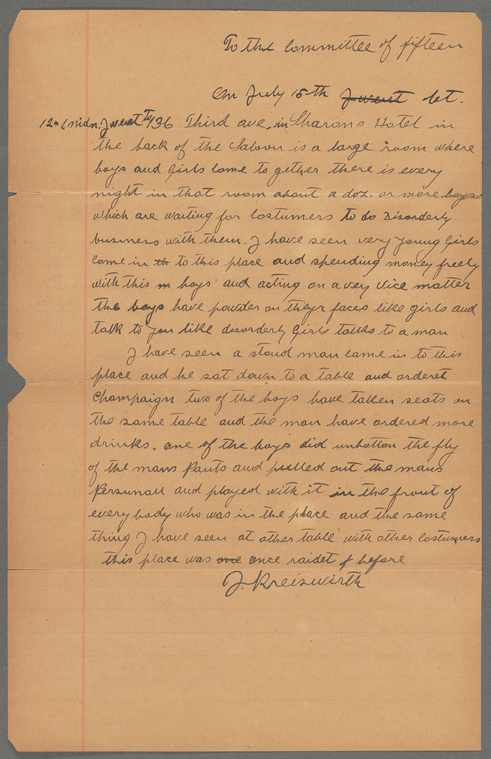 To the Committee of fifteen
On July 15th I went bt.
12 - 1 midn. I went to 136 Third ave. in Sharons Hotel in
the back of the Saloon is a large room where
boys and Girls Come to gether there is every
night in that room about a doz. or more boys
which are waiting for Costumers to do Disorderly
business with them. I have seen very young Girls
come in to this place and spending money freely
with this boys and acting on a very vice matter
the boys have powder on theyr faces like girls and
talk to you like disorderly Girls talks to a man
I have seen a stoud man came in to this
place and he sat down to a table and orderet
Champaign two of the boys have taken seats on
the same table and the man have ordered more
drinks. one of the boys did unbotton the fly
of the mans Pants and pulled out the mans
Persunall and played with it in the front of
every body who was in the place and the same
thing I have seen at other table with other Costumers
this place was one once raidet before
J. Kreiswirth